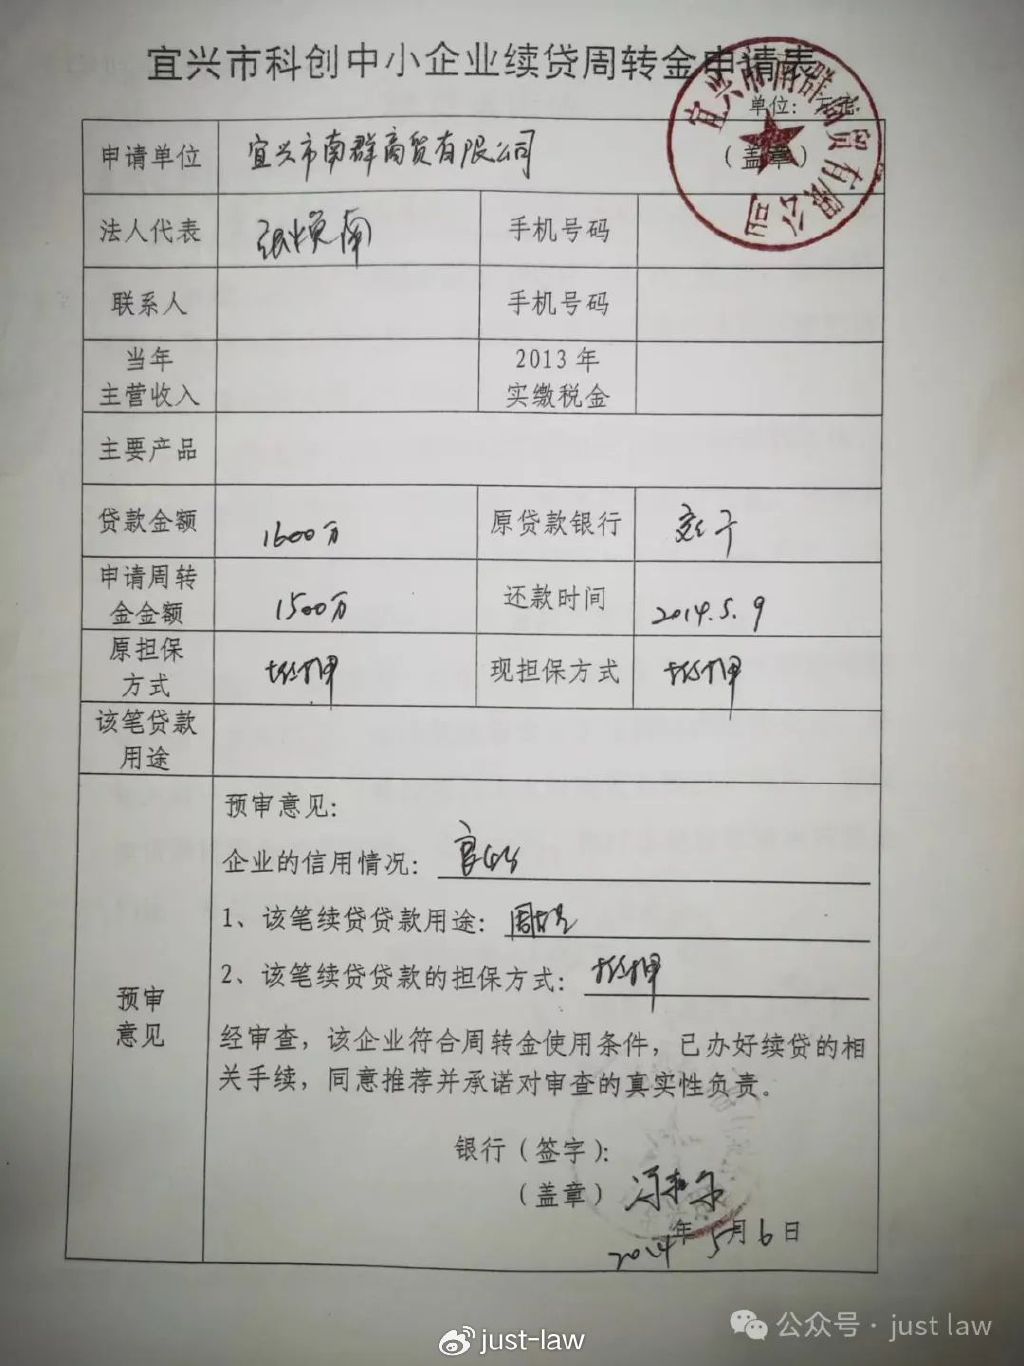 宜兴市科创中小企业续贷周转金申请表
单位：万元
申请单位 宜兴市南群商贸有限公司 （盖章）
宜兴市南群商贸有限公司
法人代表 南 手机号码
联系人 手机号码
当年
主营收入
2013年
实缴税金
主要产品
贷款金额 1600万 原贷款银行
申请周转
金金额
1500万 还款时间 2014.5.9
原担保
方式
抵押 现担保方式 抵押
该笔贷款
用途
预审
意见
预审意见：
企业的信用情况： 良好
1、该笔续贷贷款用途： 周转
2、该笔续贷贷款的担保方式： 抵押
经审查，该企业符合周转金使用条件，已办好续贷的相
关手续，同意推荐并承诺对审查的真实性负责．
银行（签字）：
（盖章）
2014年5月6日
just-law
公众号·just law